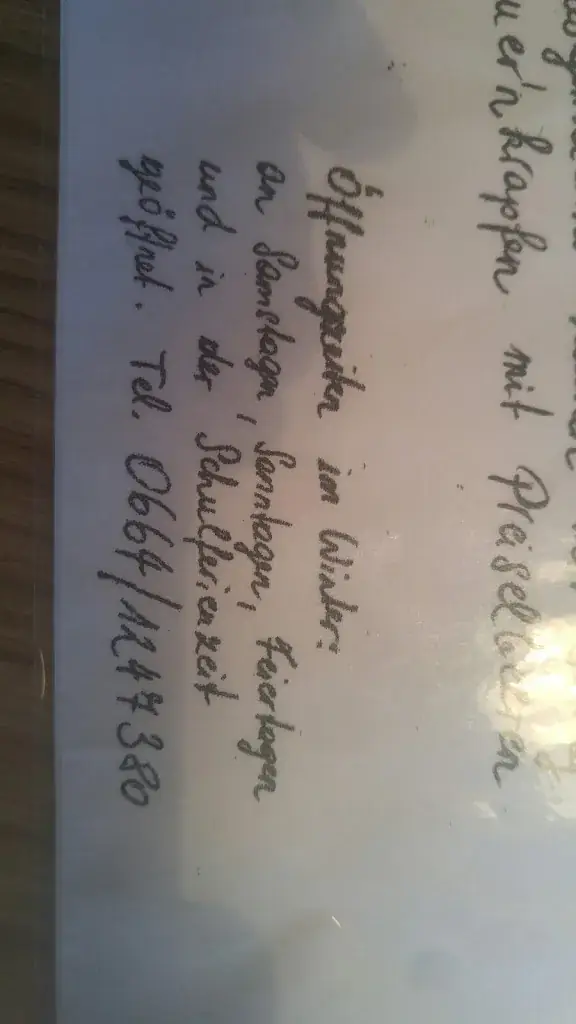 uer'n krapfen mit Preiselbeeren
Öffnungzeiten im Winter:
an Samstagen, Sonntagen, Feiertagen
und in der Schulferienzeit
geöffnet. Tel. 0664/1247380